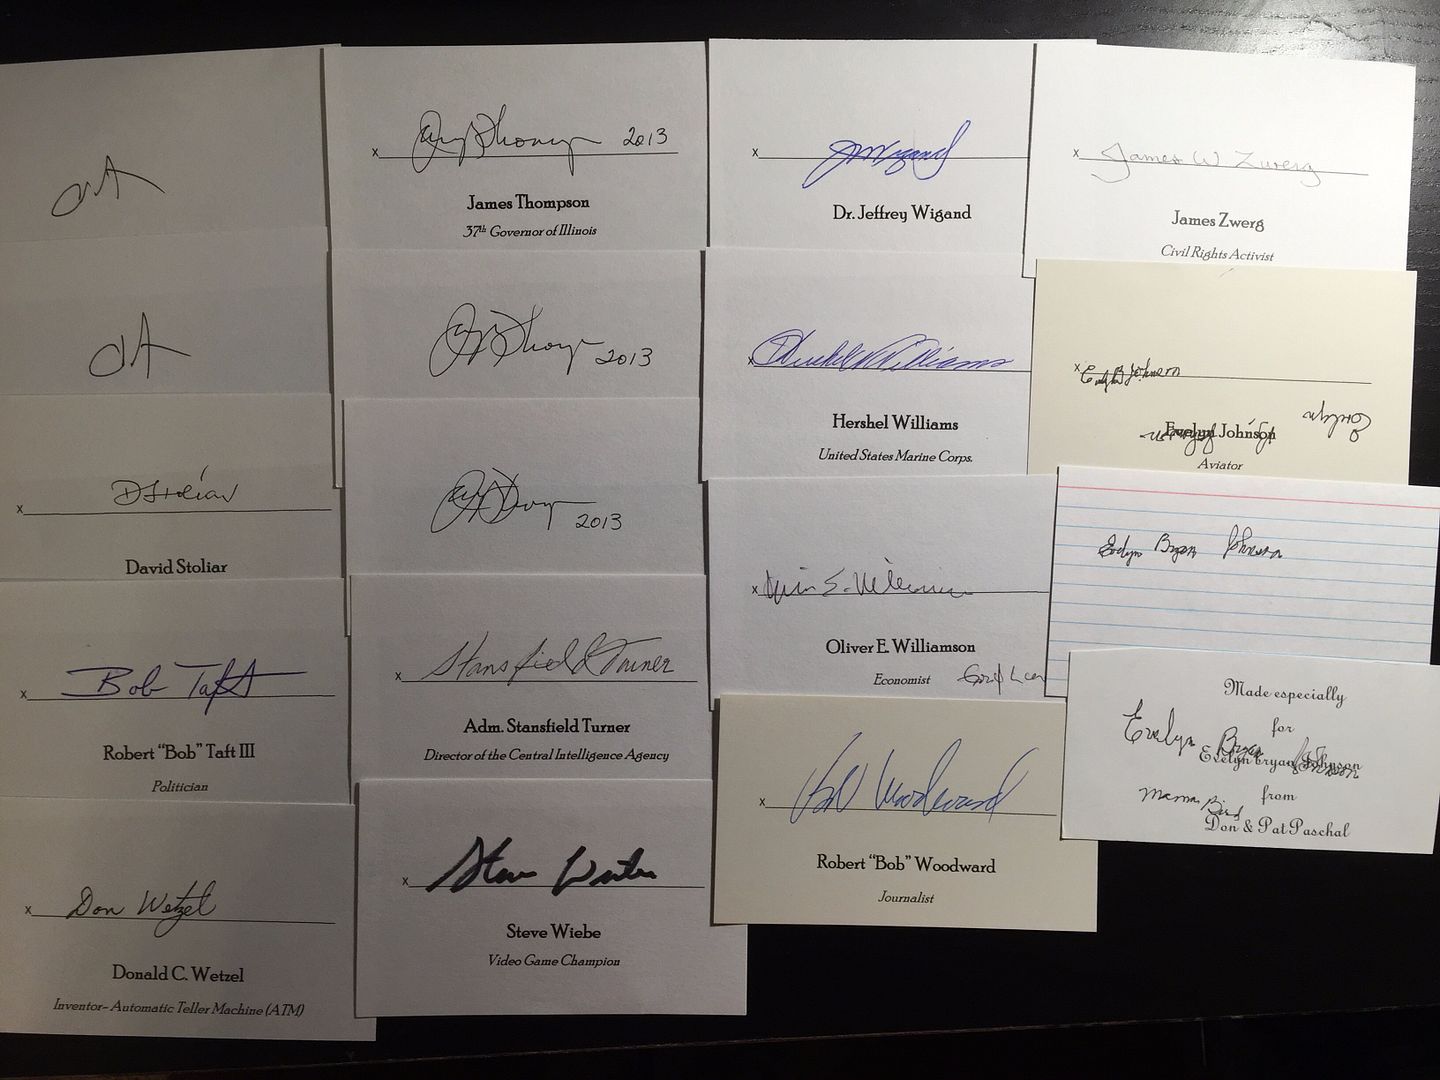 x DStoliar
David Stoliar
x Bob Taft
Robert "Bob" Taft III
Politician
x Don Wetzel
Donald C. Wetzel
Inventor- Automatic Teller Machine (ATM)
x 2013
James Thompson
37th Governor of Illinois
2013
2013
x Stansfield Turner
Adm. Stansfield Turner
Director of the Central Intelligence Agency
x Steve Wiebe
Steve Wiebe
Video Game Champion
x JWigand
Dr. Jeffrey Wigand
x Hershel Williams
Hershel Williams
United States Marine Corps.
x E. Williamson
Oliver E. Williamson
Economist
x Bob Woodward
Robert "Bob" Woodward
Journalist
x James W Zwerg
James Zwerg
Civil Rights Activist
x Evelyn B Johnson
Evelyn
Evelyn Johnson
Aviator
Evelyn Bryan Johnson
Made especially
for
Evelyn Bryan Johnson
Evelyn Bryan Johnson
from
Mama Bird
Don & Pat Paschal